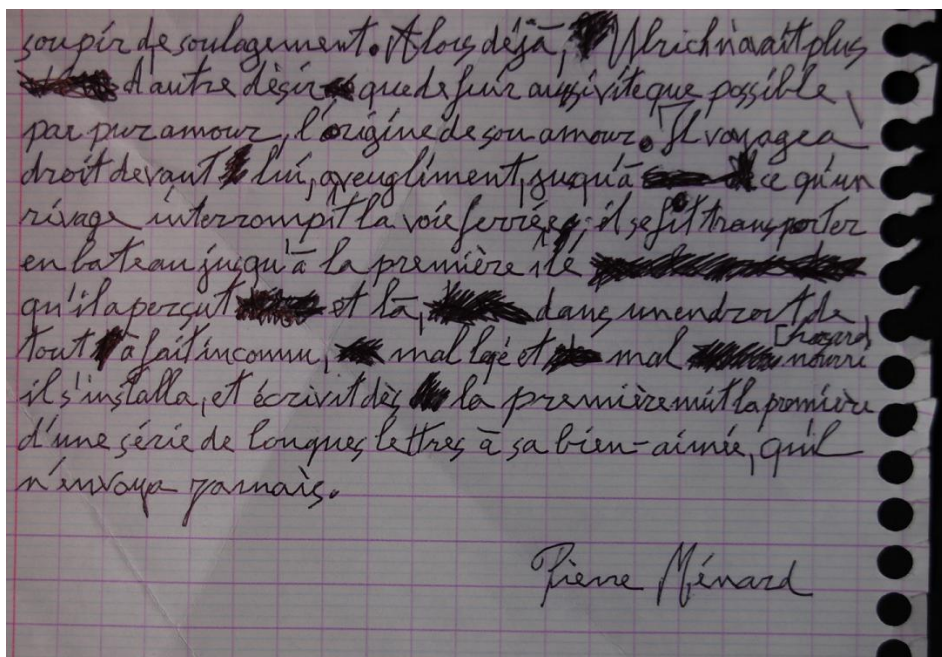 soupir de soulagement. Alors déjà, Ulrich n'avait plus
d'autre désir que de fuir aussi vite que possible,
par pur amour, l'origine de son amour. Il voyagea
droit devant lui, aveuglément, jusqu'à ce qu'un
rivage interrompît la voie ferrée ; il se fit transporter
en bateau jusqu'à la première île
qu'il aperçut et là, dans un endroit de hasard,
tout à fait inconnu, mal logé et mal nourri
il s'installa, et écrivit dès la première nuit la première
d'une série de longues lettres à sa bien-aimée, qu'il
n'envoya jamais.
Pierre Ménard